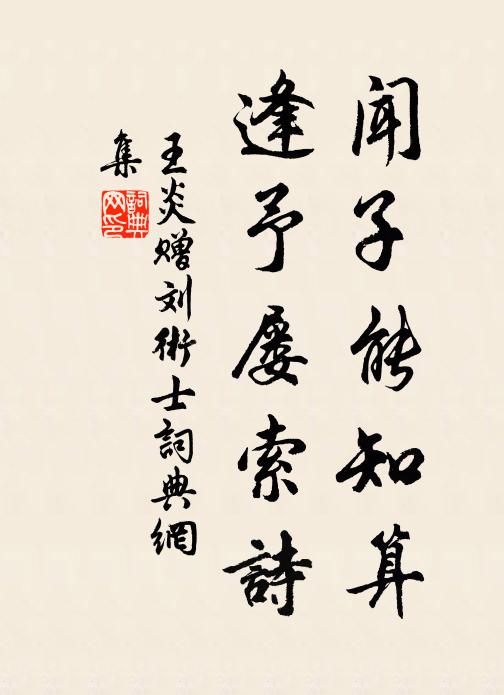 闻子能知算
逢予屡索詩
王炎贈刘術士詞典網
集
詞典
网印